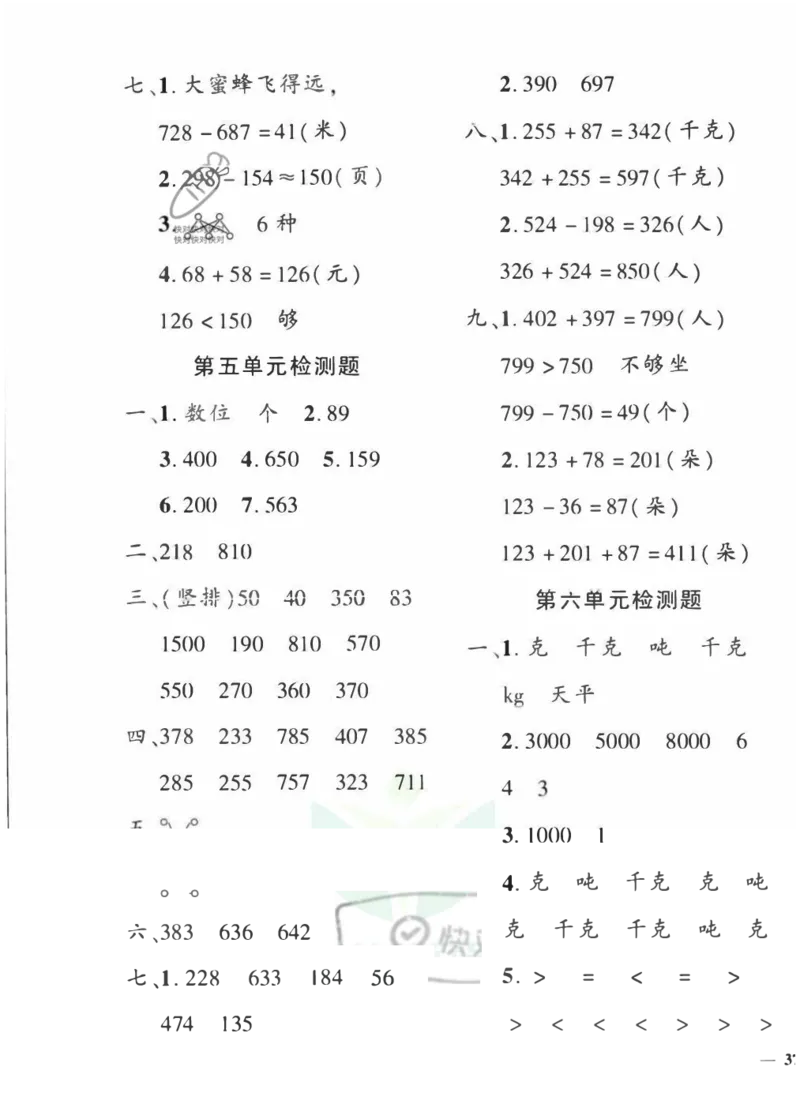 七、1.大蜜蜂飞得远，
728-687=41(米)
2.298-154≈150(页)
3. 6种
4.68+58=126(元)
126<150 够
第五单元检测题
一、1.数位 个 2.89
3.400 4.650 5.159
6.200 7.563
二、218 810
三、(竖排)50 40 350 83
1500 190 810 570
550 270 360 370
四、378 233 785 407 385
285 255 757 323 711
六、383 636 642
七、1.228 633 184 56
474 135
2.390 697
八、1.255+87=342(千克)
342+255=597(千克)
2.524-198=326(人)
326+524=850(人)
九、1.402+397=799(人)
799>750 不够坐
799-750=49(个)
2.123+78=201(朵)
123-36=87(朵)
123+201+87=411(朵)
第六单元检测题
一、1.克 千克 吨 千克
kg 天平
2.3000 5000 8000 6
4 3
3.1000 1
4.克 吨 千克 克 吨
克 千克 千克 吨 克
5.> = < = >
> < < < > > >
— 37
快对快对快对
快对快对快对